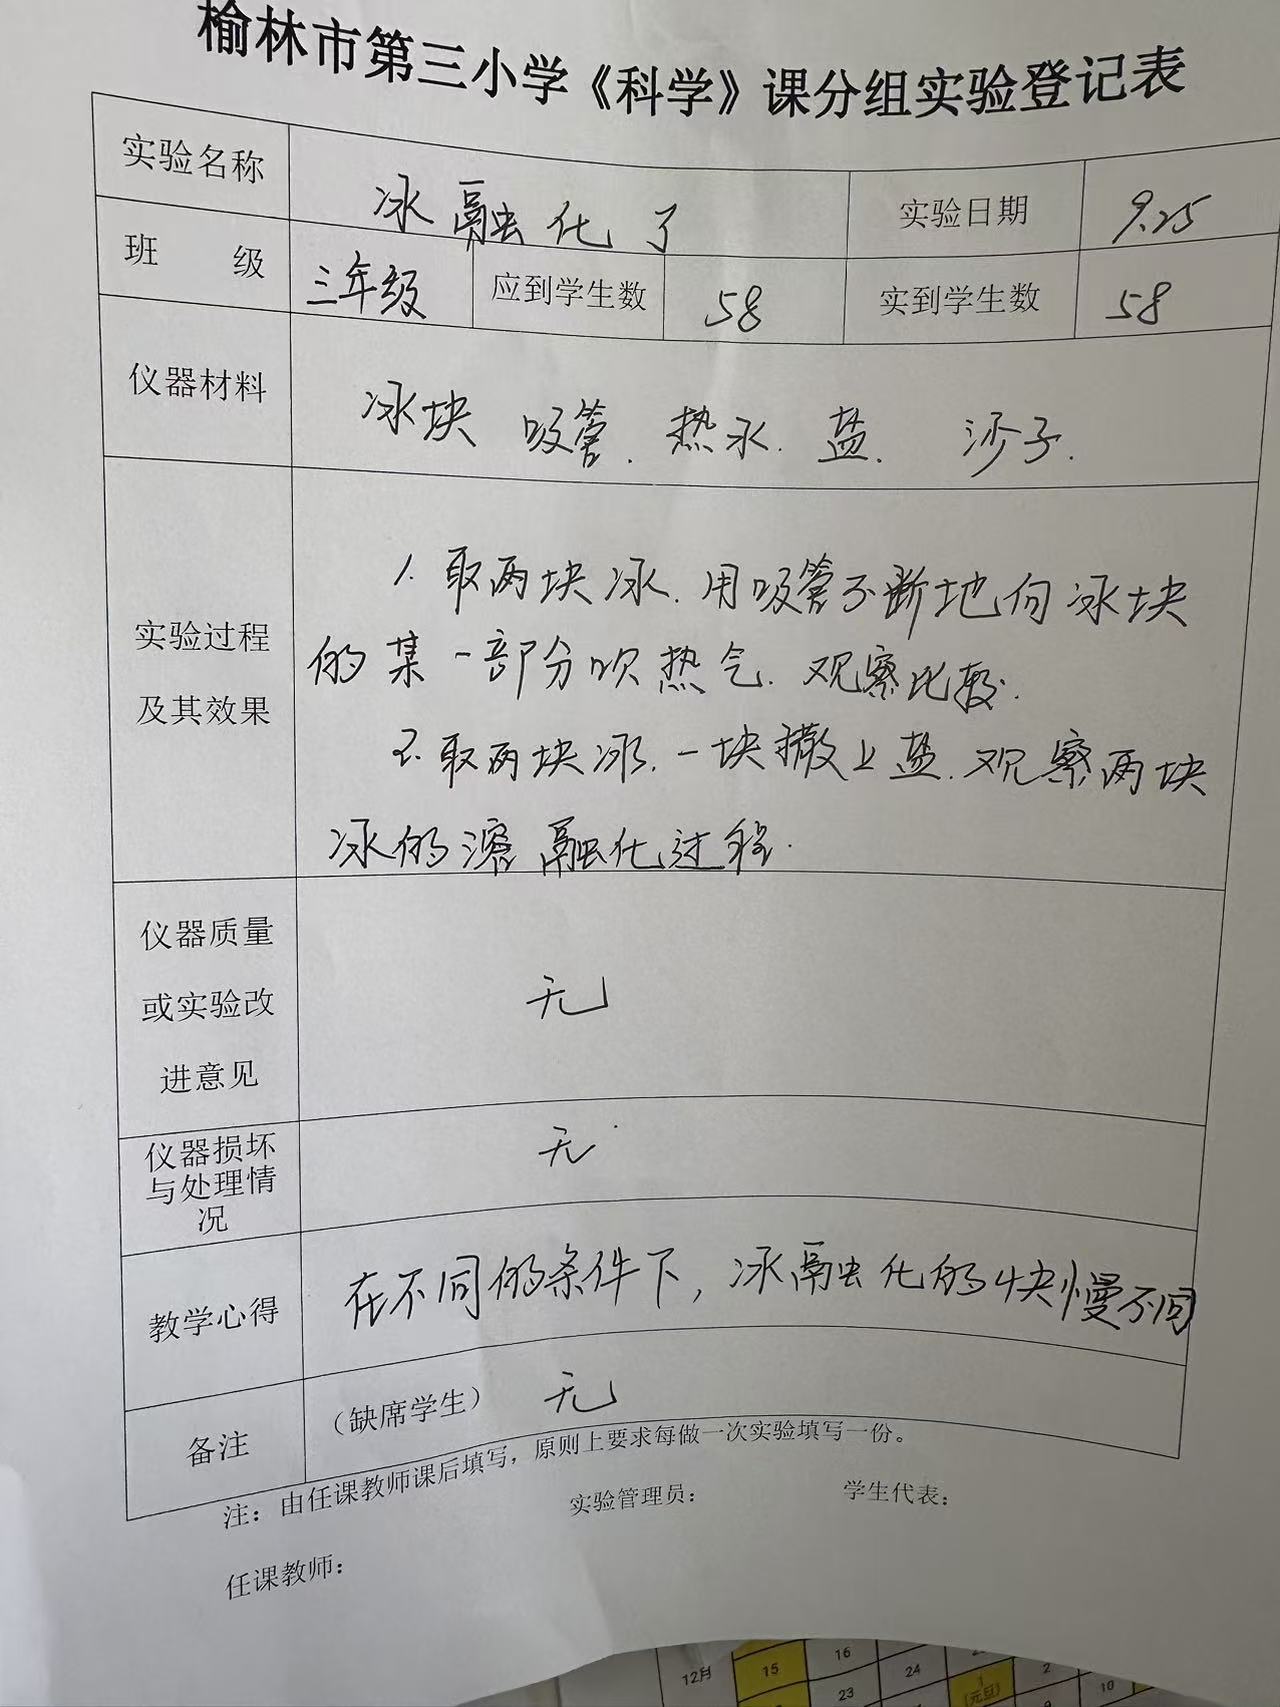 榆林市第三小学《科学》课分组实验登记表
实验名称 冰融化了 实验日期 9.25
班 级 三年级 应到学生数 58 实到学生数 58
仪器材料 冰块 吸管. 热水. 盐. 沙子.
实验过程
及其效果
1. 取两块冰. 用吸管不断地向冰块
的某一部分吹热气. 观察比较.
2. 取两块冰. 一块撒上盐. 观察两块
冰的溶融化过程.
仪器质量
或实验改
进意见
无
仪器损坏
与处理情
况
无
教学心得 在不同的条件下，冰融化的快慢不同
备注 （缺席学生） 无
注：由任课教师课后填写，原则上要求每做一次实验填写一份。
任课教师： 实验管理员： 学生代表：
12月 15 16 24 2 10
23 (元旦)